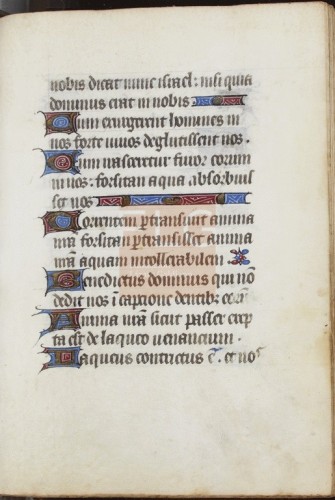 nobis dicat nunc israel: nisi quia
dominus erat in nobis
Cum exurgerent homines in
nos forte vivos deglutissent nos.
Cum irasceretur furor eorum
in nos: forsitan aqua absorbuis
set nos
Torrentem ptransivit anima
nrã forsitan ptransisset anima
nrã aquam intollerabilem.
Benedictus dominus qui nõ
dedit nos ĩ captione dentibꝫ
Anima nrã sicut passer erep
ta est de laqueo venancium.
Laqueus contritus ẽ. et nos